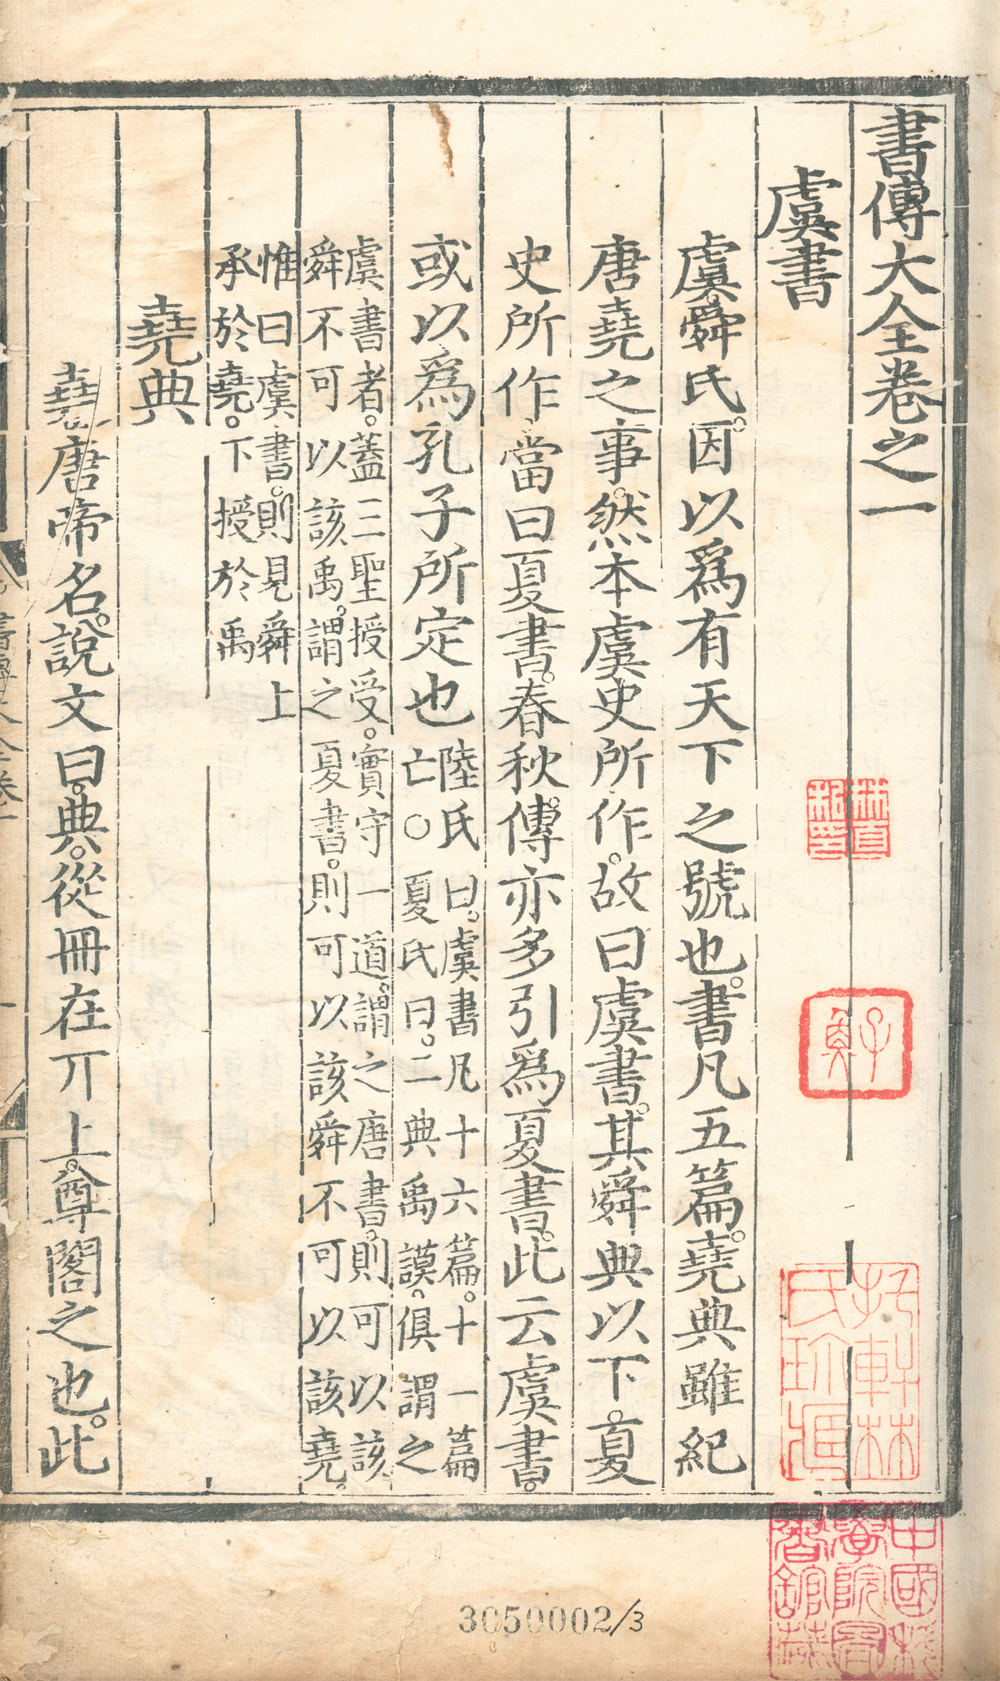 書傳大全卷之一
虞書
虞舜氏。因以爲有天下之號也。書凡五篇。堯典雖紀
唐堯之事。然本虞史所作。故曰虞書。其舜典以下。夏
史所作。當曰夏書。春秋傳亦多引爲夏書。此云虞書。
或以爲孔子所定也
陸氏曰。虞書凡十六篇。十一篇
亡○夏氏曰。二典禹謨。俱謂之
虞書者。蓋三聖授受。實守一道。謂之唐書。則可以該
舜不可以該禹。謂之夏書。則可以該舜不可以該堯。
惟曰虞書。則見舜上
承於堯。下授於禹
堯典
堯唐帝名。說文曰。典。從冊在丌上。尊閣之也。此
子貞
中國科學院圖書館藏
3050002/3